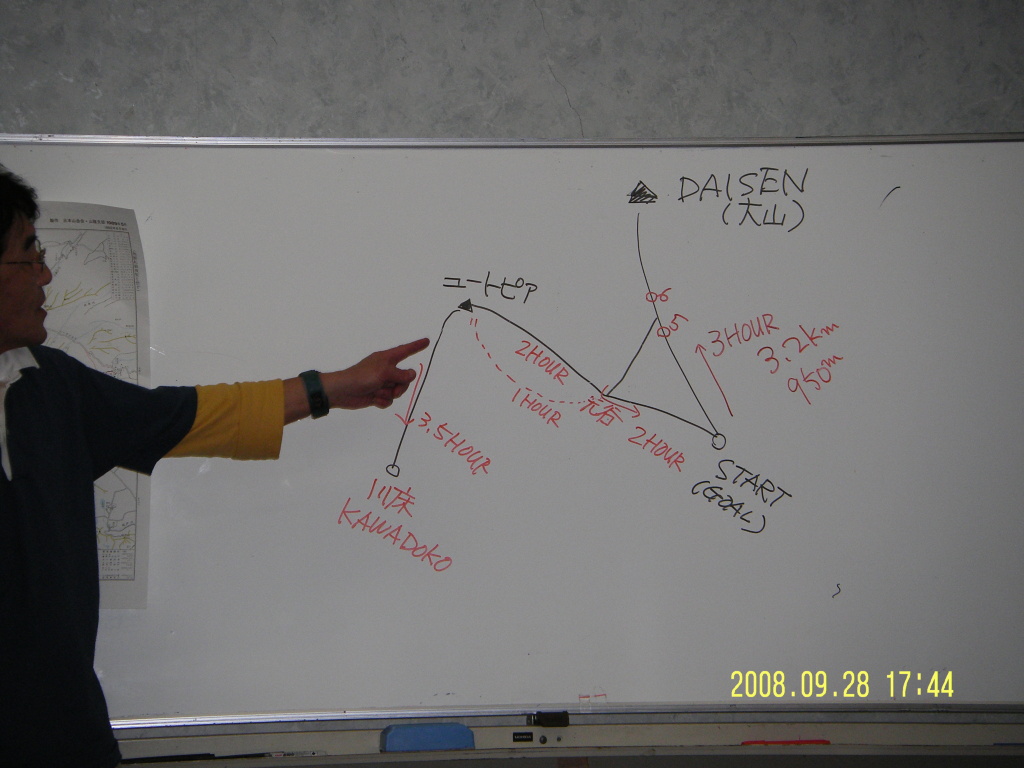 DAISEN
(大山)
ユートピア
6
5
3HOUR
3.2km
950m
2HOUR
1HOUR
元谷
2HOUR
3.5HOUR
START
(GOAL)
川床
KAWADOKO
2008.09.28 17:44